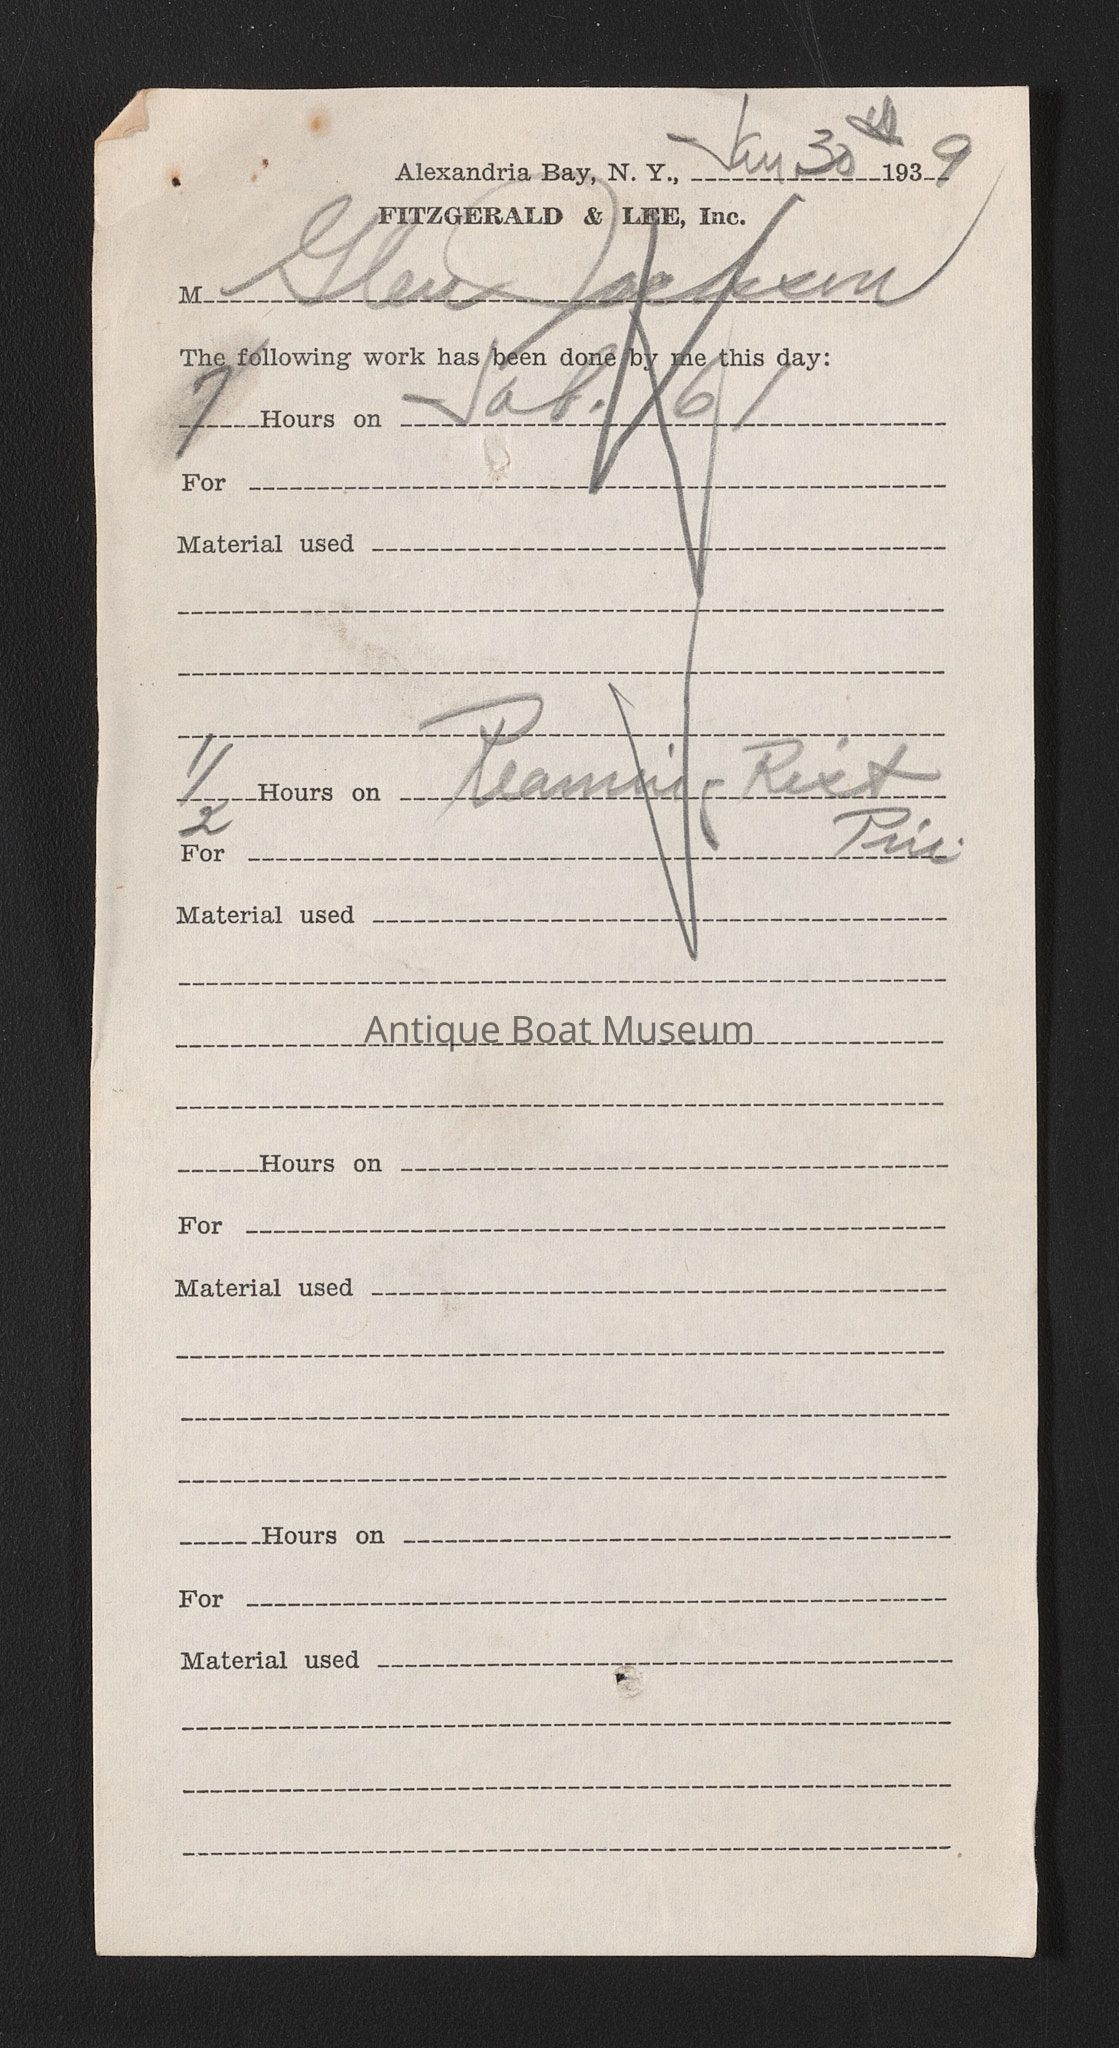 Alexandria Bay, N. Y., Jan 30th 1939
FITZGERALD & LEE, Inc.
M Glen Jackson
The following work has been done by me this day:
7 Hours on Job. 61
For
Material used
1/2 Hours on Reaming Rist
Pin
For
Material used
Antique Boat Museum
Hours on
For
Material used
Hours on
For
Material used